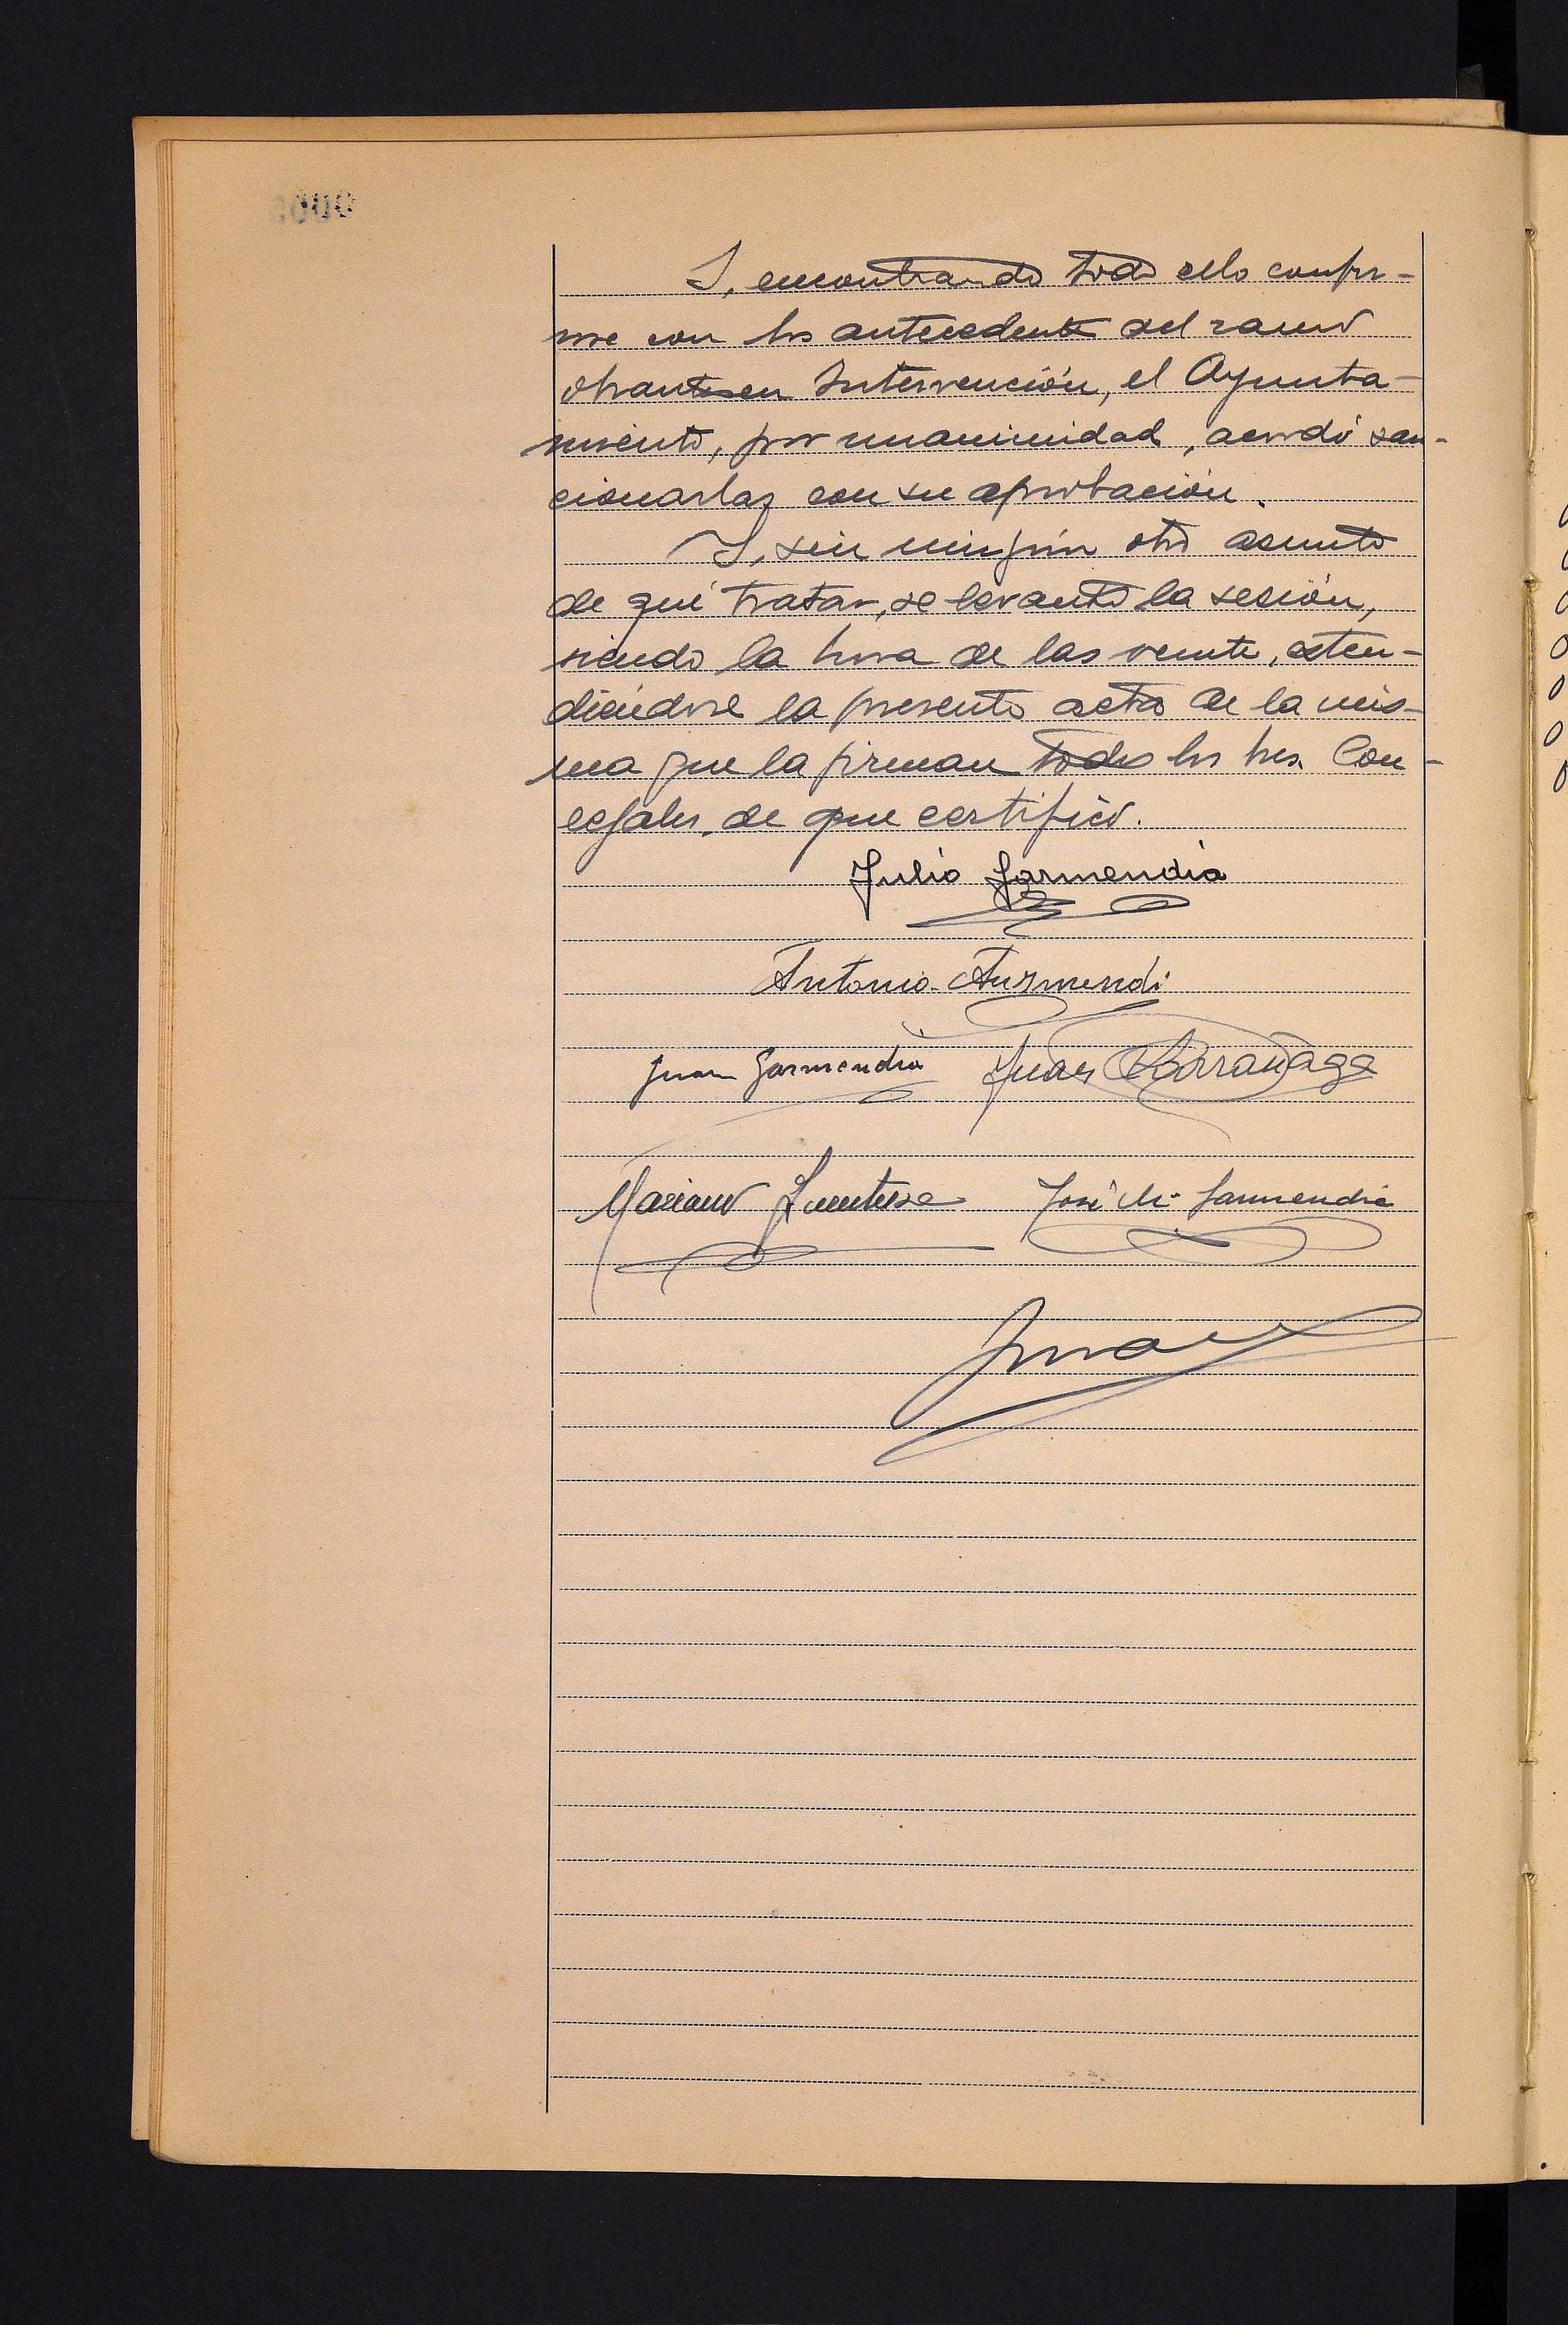 Y, encontrando todo ello confor-
me con los antecedentes del ramo
obrantes en Intervención, el Ayunta-
miento, por unanimidad, acordó san-
cionarlas con su aprobación.
Y, sin ningún otro asunto
de qué tratar, se levantó la sesión,
siendo la hora de las veinte, exten-
diéndose la presente acta de la mis-
ma que la firman todos los Sres. Con-
cejales, de que certifico.
Julio Garmendia
Antonio Auzmendi
Juan Garmendia Juan Larrañaga
Mariano José Mª Garmendia